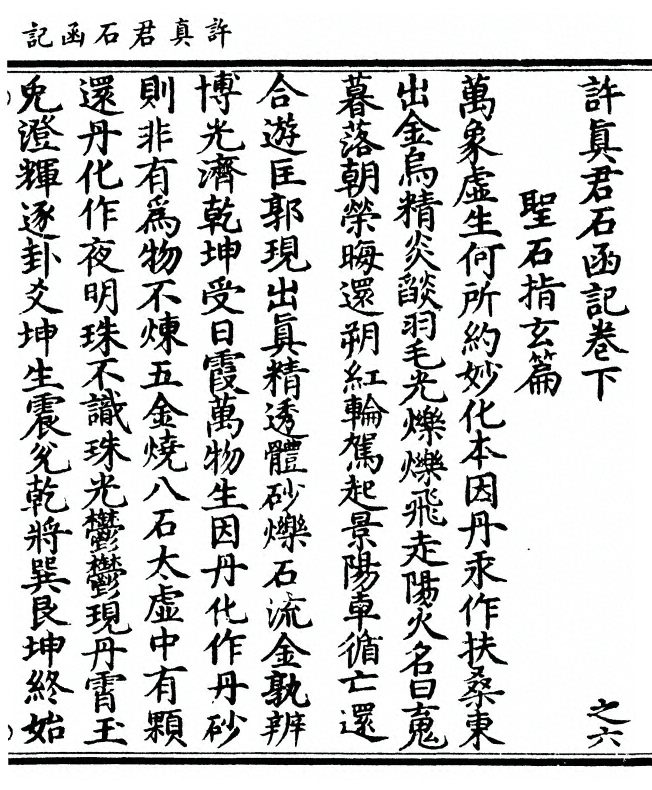 許真君石函記
許眞君石函記卷下 之六
聖石指玄篇
萬象虛生何所約妙化本因丹汞作扶桑東
出金烏精炎燄羽毛光爍爍飛走陽火名曰䰟
暮落朝榮晦還朔紅輪駕起景陽車循亡還
合遊匡郭現出眞精透體砂爍石流金孰辨
博光濟乾坤受日霞萬物生因丹化作丹砂
則非有爲物不煉五金燒八石太虛中有顆
還丹化作夜明珠不識珠光鬱鬱現丹霄玉
兔澄輝逐卦爻坤生震兊乾將巽艮坤終始